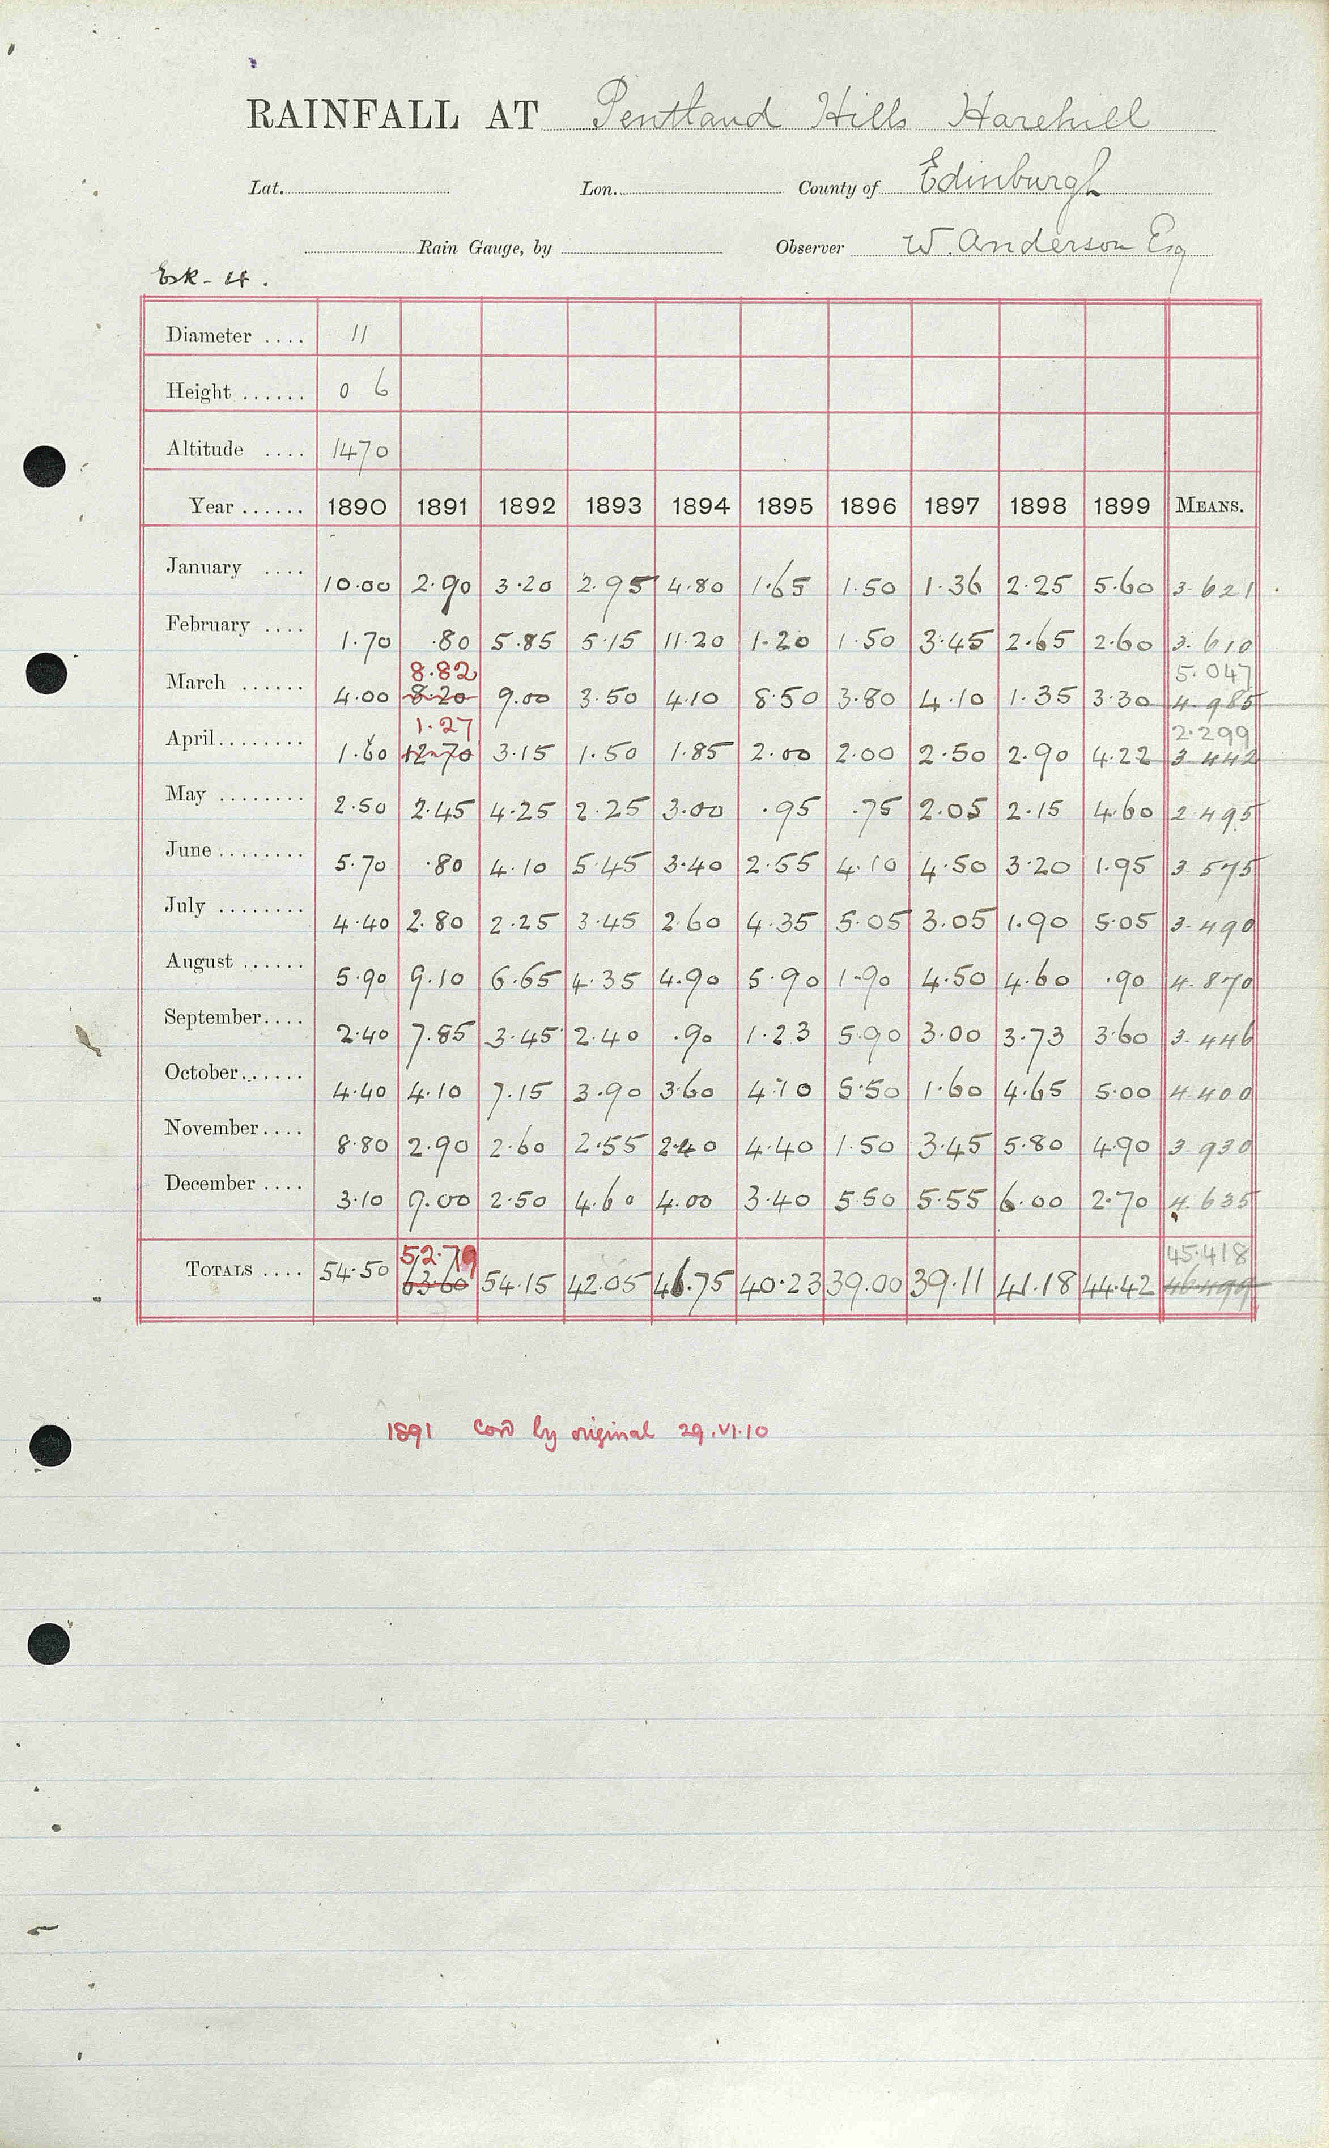 RAINFALL AT Pentland Hills Harehill
Lat. Lon. County of Edinburgh
Rain Gauge, by Observer W. Anderson Esq
Esk - 4.
Diameter .... 11
Height ...... 0 6
Altitude .... 1470
Year ...... 1890 1891 1892 1893 1894 1895 1896 1897 1898 1899 MEANS.
January .... 10.00 2.90 3.20 2.95 4.80 1.65 1.50 1.36 2.25 5.60 3.621
February .... 1.70 .80 5.85 5.15 11.20 1.20 1.50 3.45 2.65 2.60 3.610
8.82 5.047
March ...... 4.00 8.20 9.00 3.50 4.10 8.50 3.80 4.10 1.35 3.30 4.985
1.27 2.299
April ........ 1.60 12.70 3.15 1.50 1.85 2.00 2.00 2.50 2.90 4.22 3.442
May ........ 2.50 2.45 4.25 2.25 3.00 .95 .75 2.05 2.15 4.60 2.495
June ........ 5.70 .80 4.10 5.45 3.40 2.55 4.10 4.50 3.20 1.95 3.575
July ........ 4.40 2.80 2.25 3.45 2.60 4.35 5.05 3.05 1.90 5.05 3.490
August ...... 5.90 9.10 6.65 4.35 4.90 5.90 1.90 4.50 4.60 .90 4.870
September .... 2.40 7.85 3.45 2.40 .90 1.23 5.90 3.00 3.73 3.60 3.446
October ...... 4.40 4.10 7.15 3.90 3.60 4.10 5.50 1.60 4.65 5.00 4.400
November .... 8.80 2.90 2.60 2.55 2.40 4.40 1.50 3.45 5.80 4.90 3.930
December .... 3.10 9.00 2.50 4.60 4.00 3.40 5.50 5.55 6.00 2.70 4.635
52.79 45.418
TOTALS .... 54.50 63.60 54.15 42.05 46.75 40.23 39.00 39.11 41.18 44.42 46.499
1891 Corr by original 29.VI.10